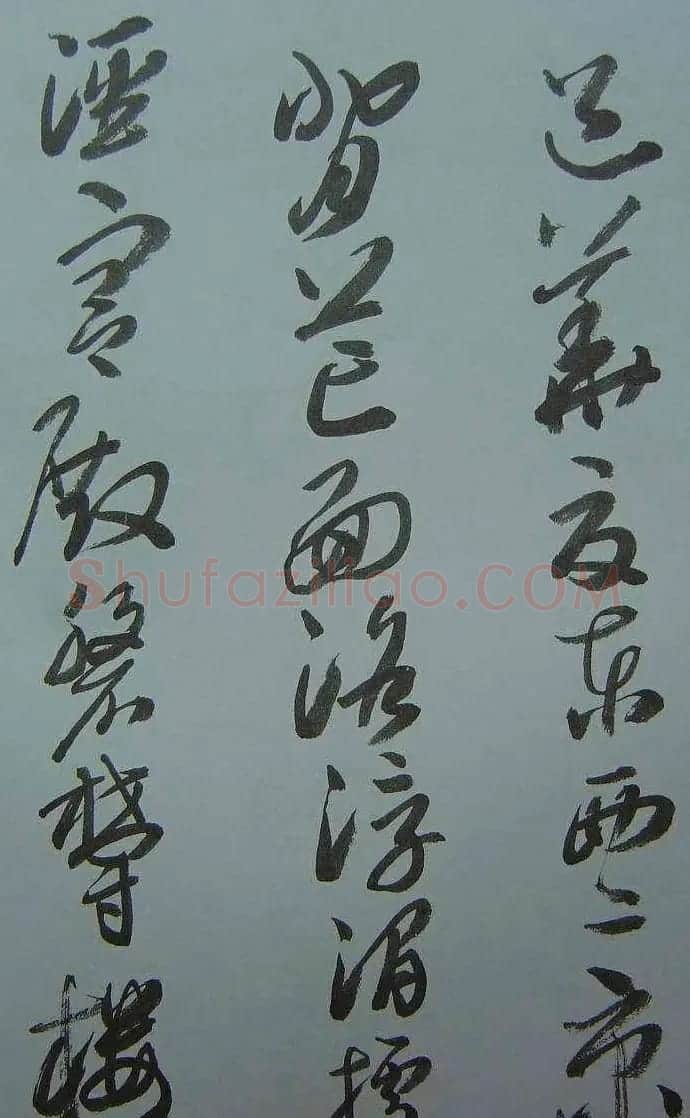 邑華夏東西二京
背芒面洛浮渭據
涇宮殿盤欝樓
Shufaziliao.COM